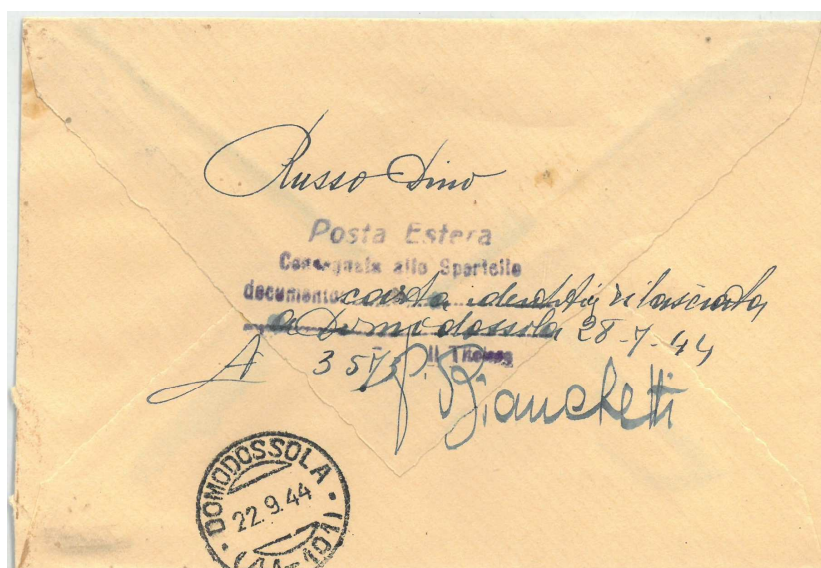 Russo Dino
Posta Estera
Consegnata allo Sportello
documento carta identità rilasciata
a Domodossola 28-7-44
A 3575 Il Titolare
Bianchetti
DOMODOSSOLA
22.9.44